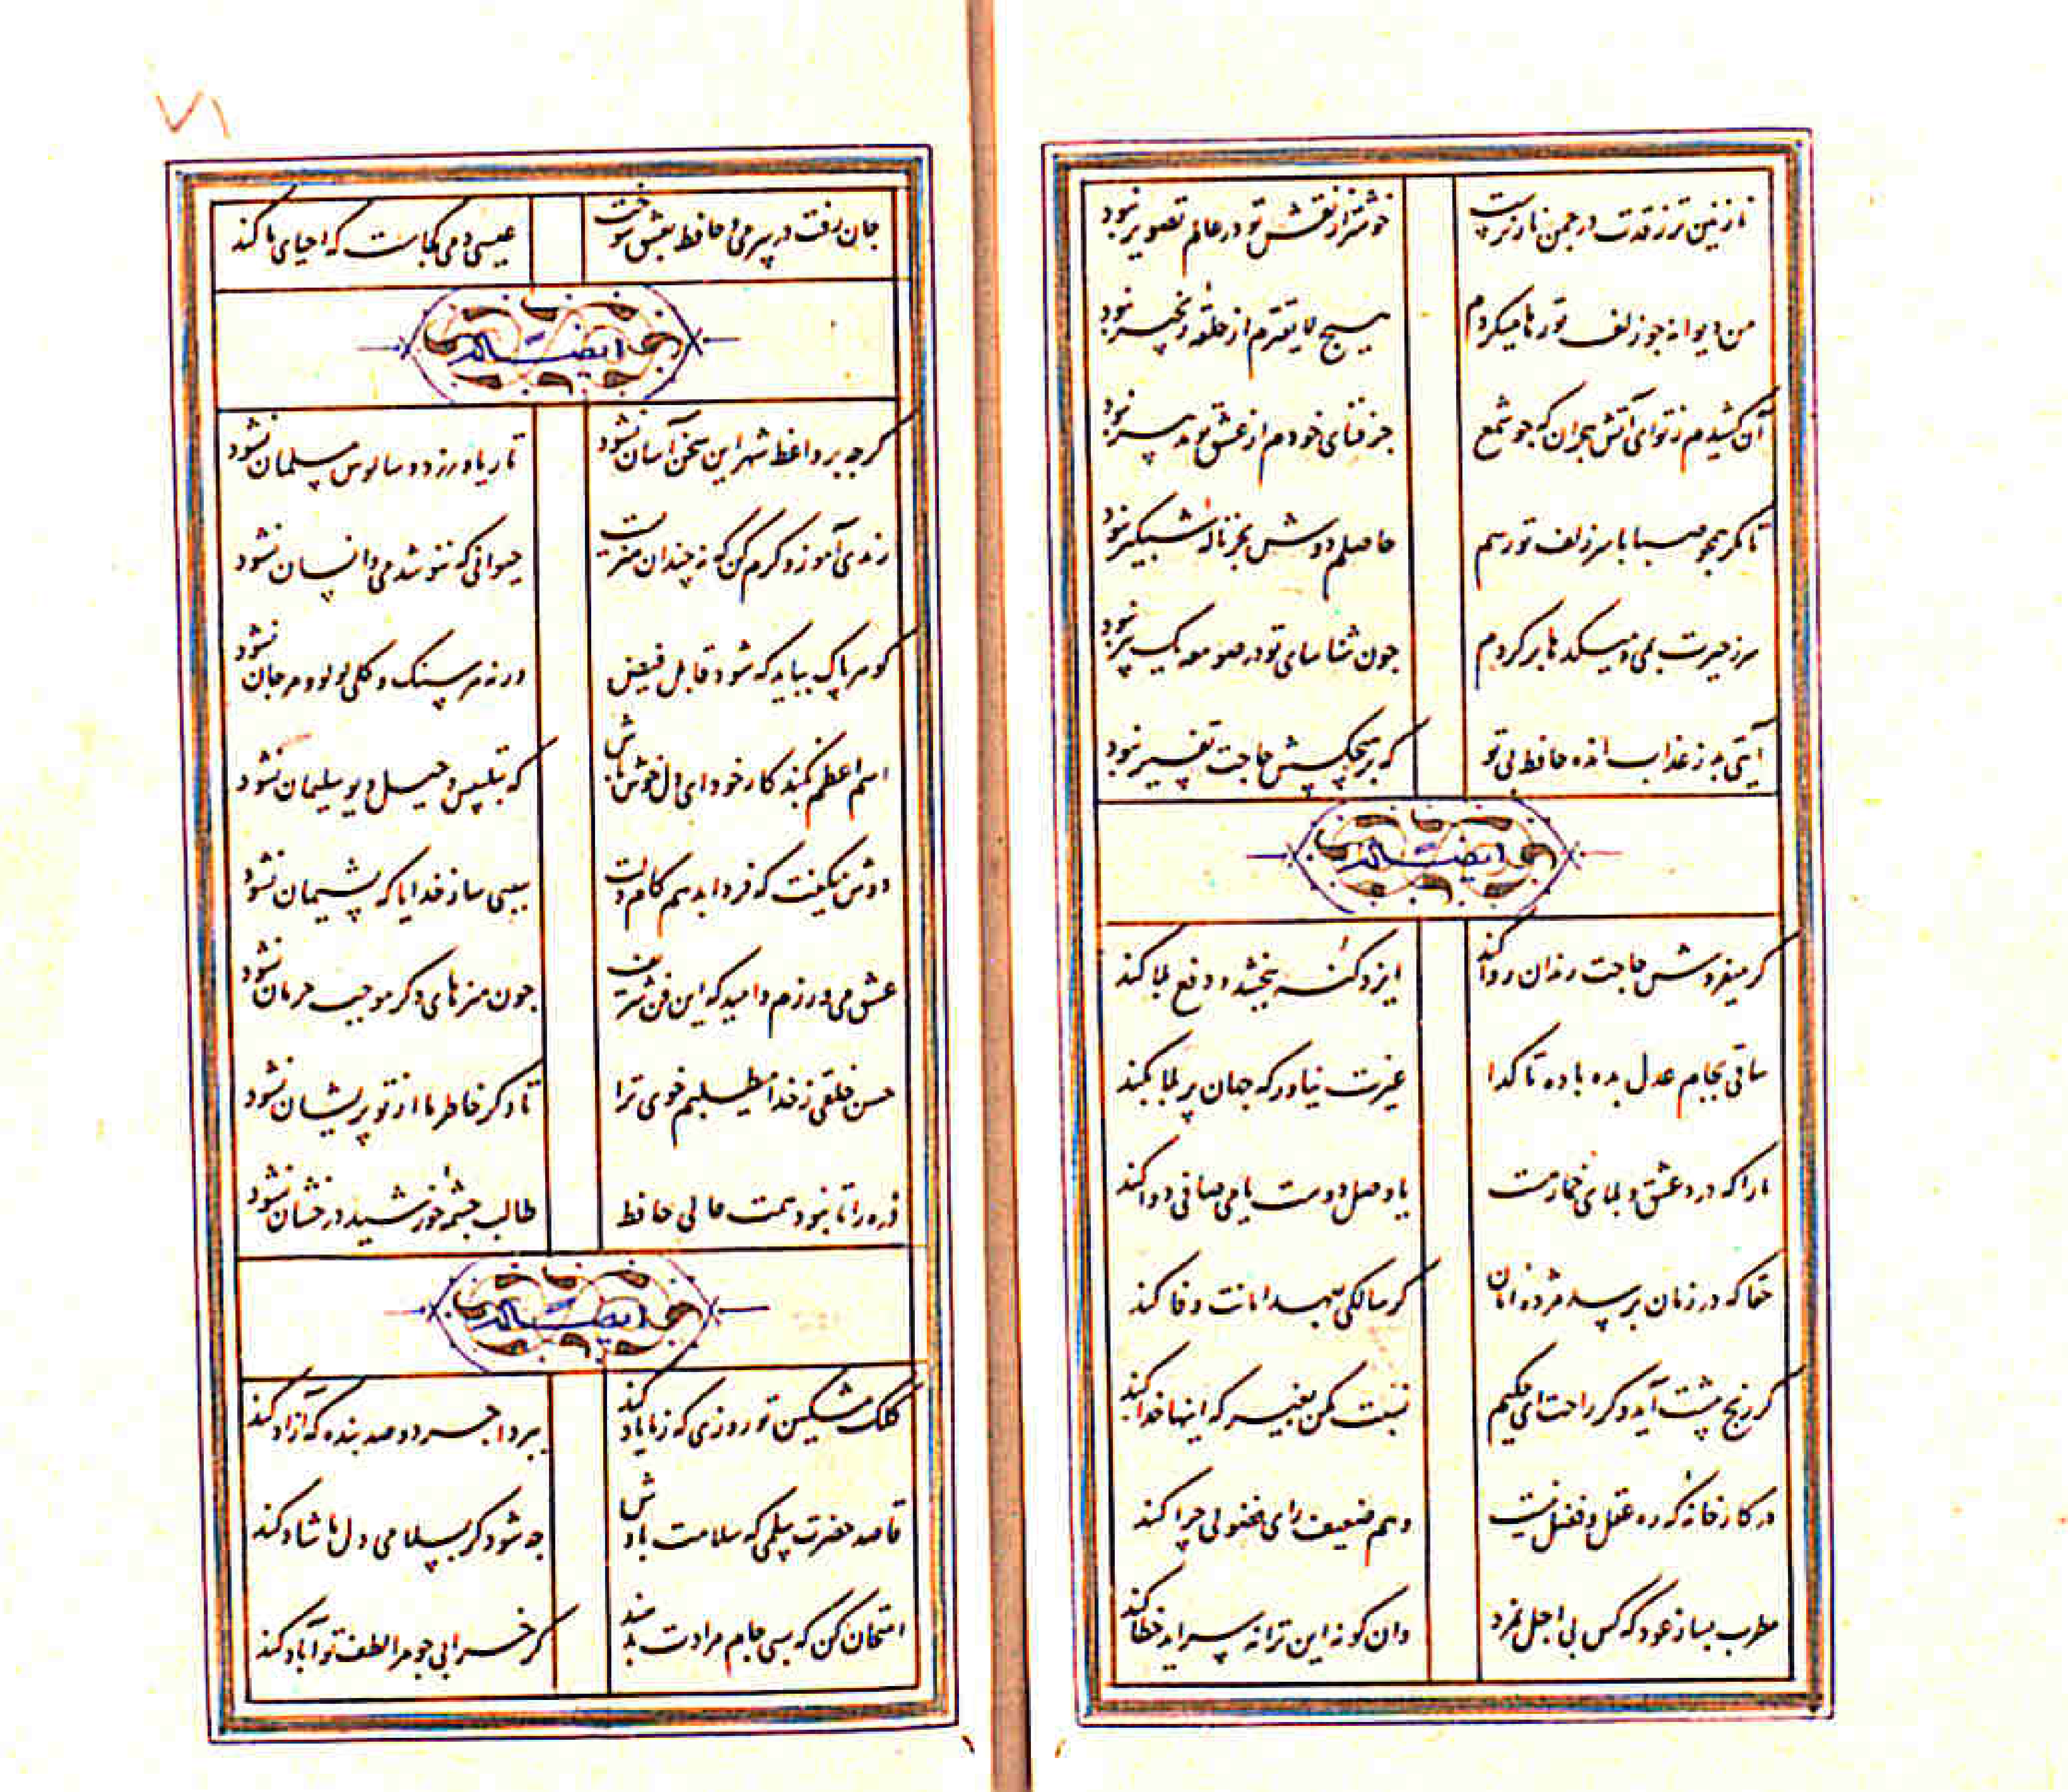 نازنین تر ز قدت در چمن ناز نرست
خوشتر از نقش تو در عالم تصویر نبود
من دیوانه جو زلف تو رها میکردم
هیچ لایقترم از حلقه زنجیر نبود
آن کشیدم ز تو ای آتش هجران که جو شمع
جز فنای خودم از عشق تو تدبیر نبود
تا مکر همجو صبا با سر زلف تو رسم
حاصلم دوش بجز ناله شبکیر نبود
سر ز حیرت بدر میکدها بر کردم
جون شناسای تو در صومعه یک پیر نبود
آیتی بد ز عذاب انده حافظ بی تو
که بر هیچکسش حاجت تفسیر نبود
ایضاً له
کر میفروش حاجت رندان روا کند
ایزد کنه ببخشد و دفع بلا کند
ساقی بجام عدل بده باده تا کدا
غیرت نیاورد که جهان پر بلا کند
ما را که درد عشق و بلای خمار هست
یا وصل دوست یا می صافی دوا کند
حقا که در زمان برسد مژده امان
کر سالکی بعهد امانت وفا کند
کر رنج پیشت آید و کر راحت ای حکیم
نسبت مکن بغیر که اینها خدا کند
در کارخانه که ره عقل و فضل نیست
وهم ضعیف رای فضولی چرا کند
مطرب بساز عود که کس بی اجل نمرد
وان کو نه این ترانه سراید خطا کند
۷۱
جان رفت در سر می و حافظ بعشق سوخت
عیسی دمی کجاست که احیای ما کند
ایضاً له
کرجه بر واعظ شهر این سخن آسان نشود
تا ریا ورزد و سالوس مسلمان نشود
رندی آموز و کرم کن که نه چندان هنرست
حیوانی که ننوشد می و انسان نشود
کوهر پاک بباید که شود قابل فیض
ورنه هر سنک و کلی لولو و مرجان نشود
اسم اعظم بکند کار خود ای دل خوش باش
که بتلبیس و حیل دیو سلیمان نشود
دوش میکفت که فردا بدهم کام دلت
سببی ساز خدایا که پشیمان نشود
عشق می ورزم و امید که این فن شریف
جون هنرهای دکر موجب حرمان نشود
حسن خلقی ز خدا میطلبم خوی ترا
تا دکر خاطر ما از تو پریشان نشود
ذره را تا نبود همت عالی حافظ
طالب جشمه خورشید درخشان نشود
ایضاً له
کلک مشکین تو روزی که ز ما یاد کند
ببرد اجر دو صد بنده که آزاد کند
قاصد حضرت سلمی که سلامت بادش
جه شود کر بسلامی دل ما شاد کند
امتحان کن که بسی جام مرادت بدهند
کر خرابی جو مرا لطف تو آباد کند